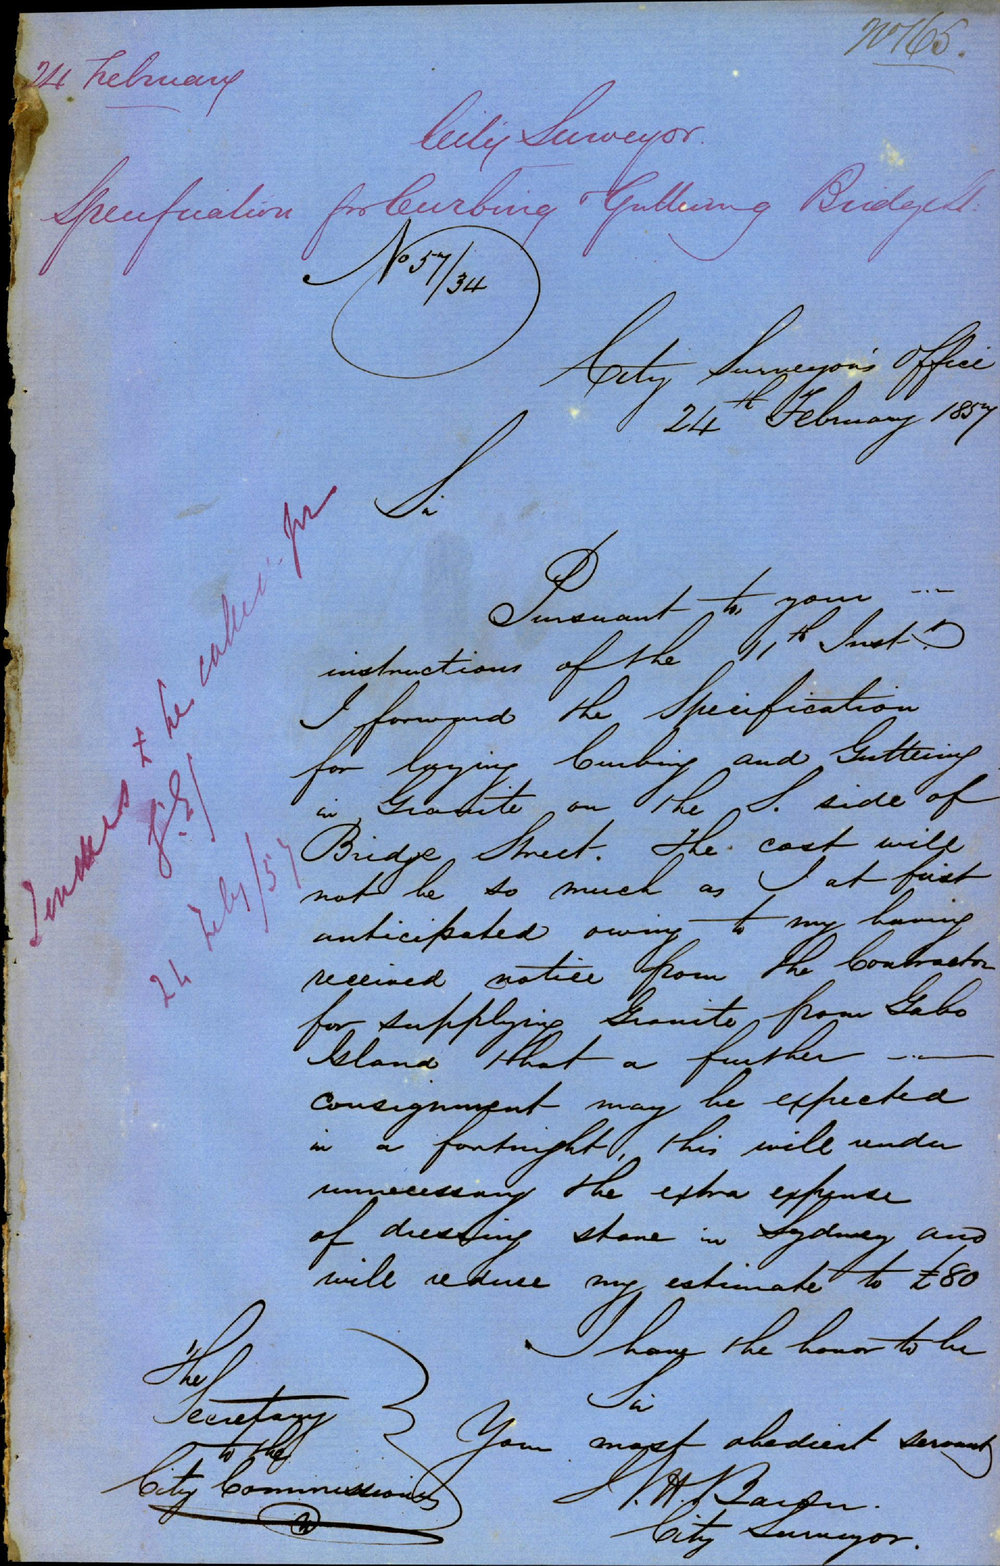 No 165.
24 February
City Surveyor.
Specification for Curbing & Guttering Bridge St.
No 57/34
City Surveyor's Office
24th February 1857
Sir
Pursuant to your
instructions of the 11th Inst.
I forward the Specification
for laying Curbing and Guttering
in Granite on the S. side of
Bridge Street. The cost will
not be so much as I at first
anticipated owing to my having
received notice from the Contractor
for supplying Granite from Gabo
Island that a further
consignment may be expected
in a fortnight, this will render
unnecessary the extra expense
of dressing stone in Sydney and
will reduce my estimate to £80
I have the honor to be
Sir
Your most obedient servant
City Surveyor.
The
Secretary
to the
City Commissioners
Tenders to be called for
24 Feby/57